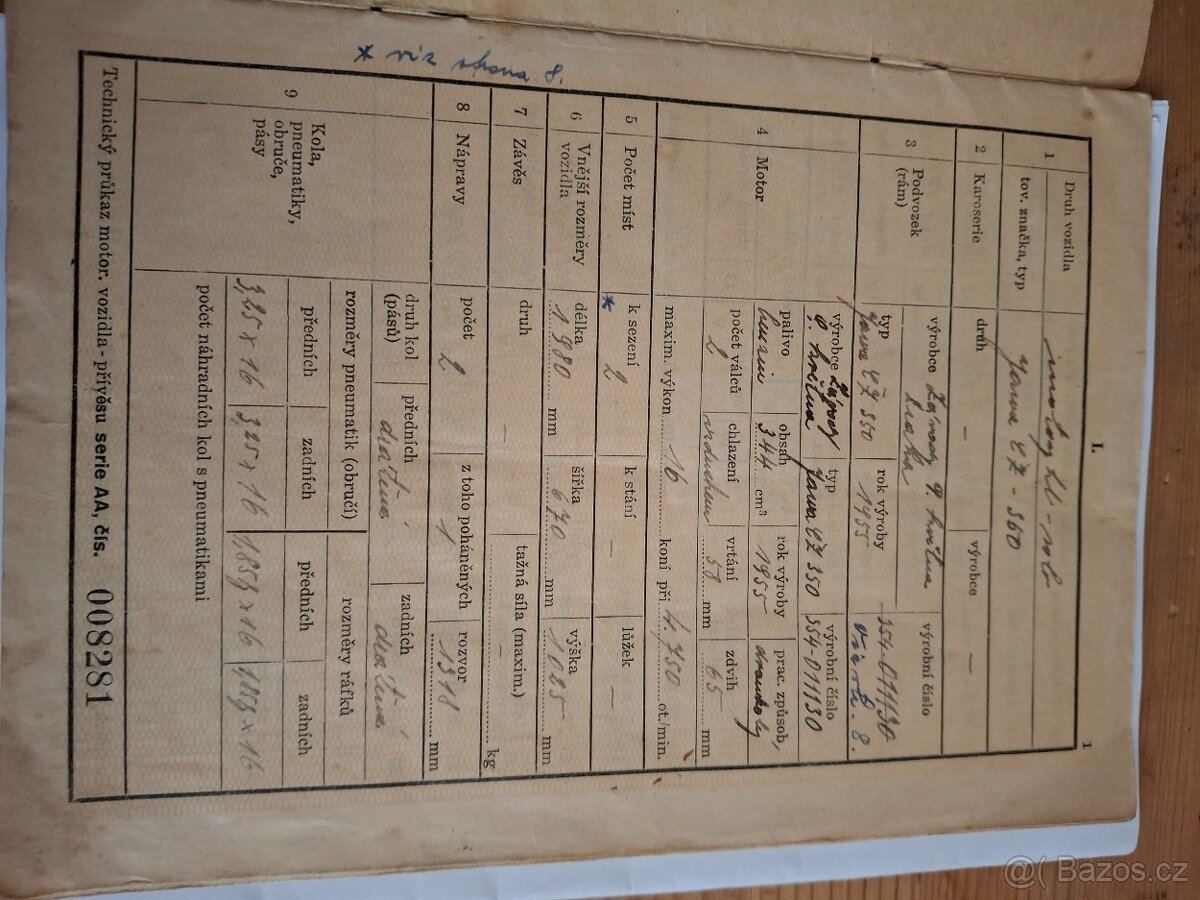 * viz strana 8.
I.
1
1 Druh vozidla motocykl - solo
tov. značka, typ Jawa ČZ - 360
2 Karoserie druh — výrobce —
3 Podvozek (rám) výrobce Závody 9. května výrobní číslo
typ Jawa ČZ 350 rok výroby 1955 354-011130
viz str. 8.
4 Motor výrobce Závody 9. května typ Jawa ČZ 350 výrobní číslo 354-011130
palivo benzin obsah 344 cm³ rok výroby 1955 prac. způsob, dvoudobý
počet válců 2 chlazení vzduchem vrtání 58 mm zdvih 65 mm
maxim. výkon 16 koní při 4.750 ot./min.
5 Počet míst * k sezení 2 k stání — lůžek —
6 Vnější rozměry vozidla délka 1980 mm šířka 670 mm výška 1025 mm
7 Závěs druh — tažná síla (maxim.) — kg
8 Nápravy počet 2 z toho poháněných 1 rozvor 1318 mm
9 Kola, pneumatiky, obruče, pásy
druh kol (pásů) předních drátěná zadních drátěná
rozměry pneumatik (obručí) rozměry ráfků
předních zadních předních zadních
3,25 x 16 3,25 x 16 1,85B x 16 1,85B x 16
počet náhradních kol s pneumatikami
Technický průkaz motor. vozidla - přívěsu serie AA, čís. 008281
@( Bazos.cz